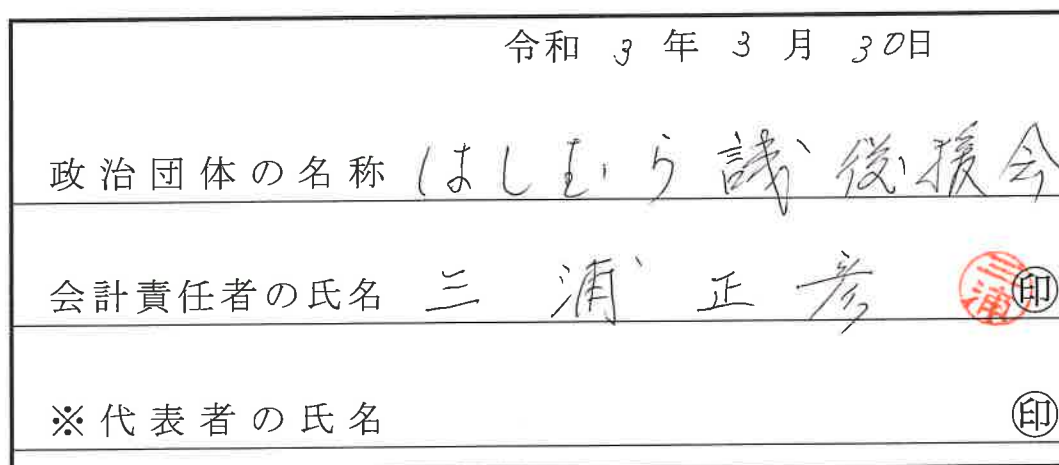 令和 3 年 3 月 30日
政治団体の名称 はしむら誠後援会
会計責任者の氏名 三浦正彦 三浦 印
※代表者の氏名 印